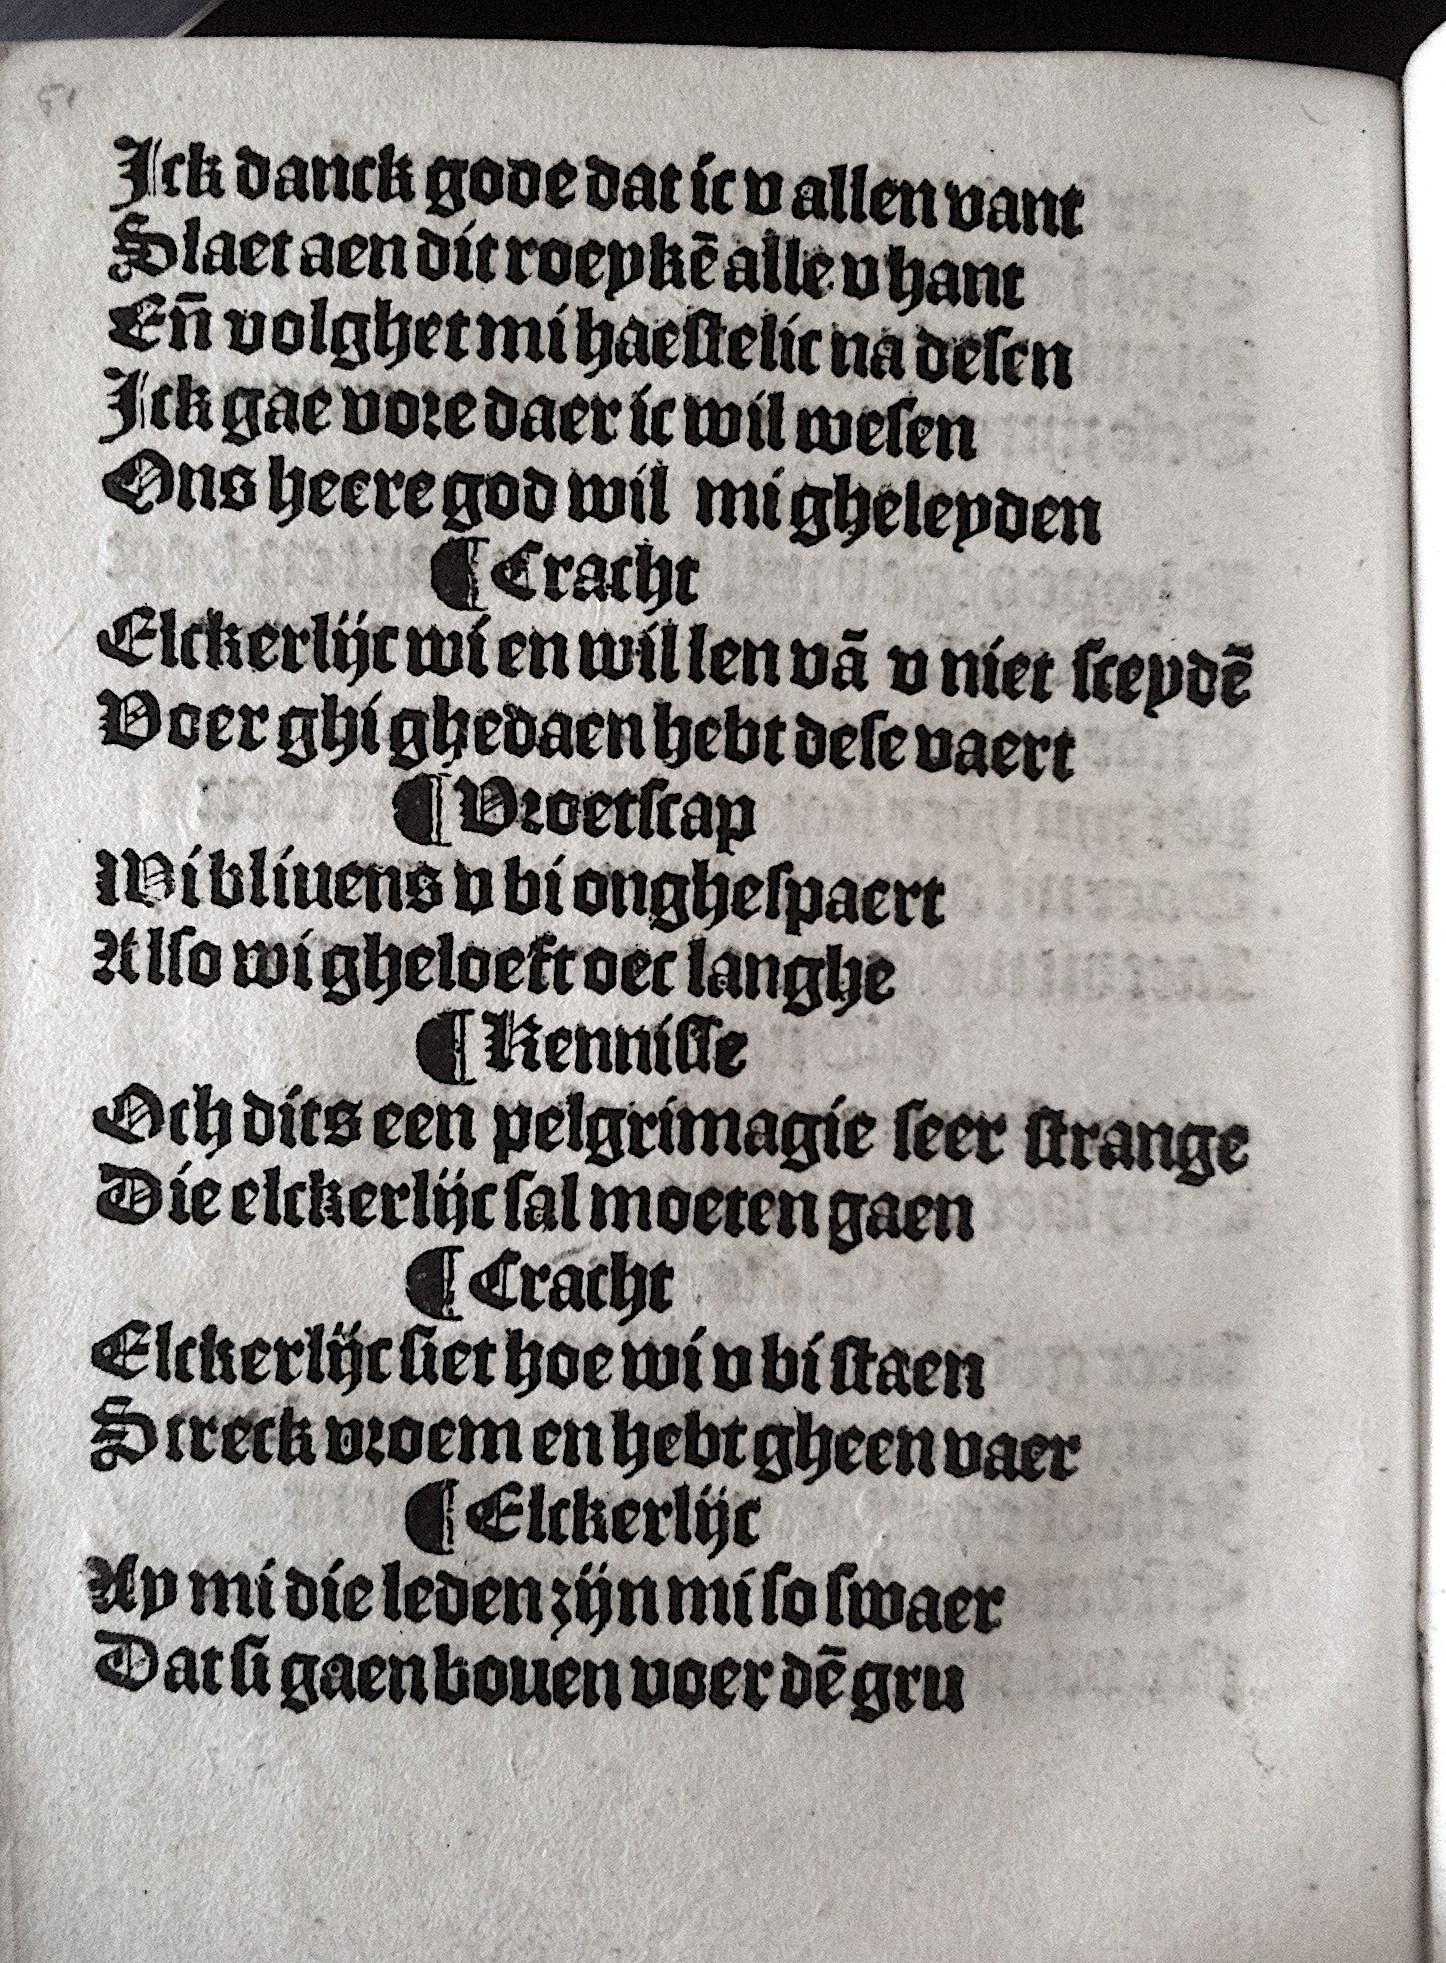 51
Ick danck gode dat ic v allen vant
Slaet aen dit roeykē alle v hant
Eñ volghet mi haestelic na desen
Ick gae vore daer ic wil wesen
Ons heere god wil mi gheleyden
¶ Cracht
Elckerlijc wi en willen vā v niet sceydē
Voer ghi ghedaen hebt dese vaert
¶ Vroetscap
Wi bliuens v bi onghespaert
Also wi gheloeft oec langhe
¶ Kennisse
Och dits een pelgrimagie seer strange
Die elckerlijc sal moeten gaen
¶ Cracht
Elckerlijc siet hoe wi v bi staen
Streck vroem en hebt gheen vaer
¶ Elckerlijc
Ay mi die leden zijn mi so swaer
Dat si gaen bouen voer dē gru